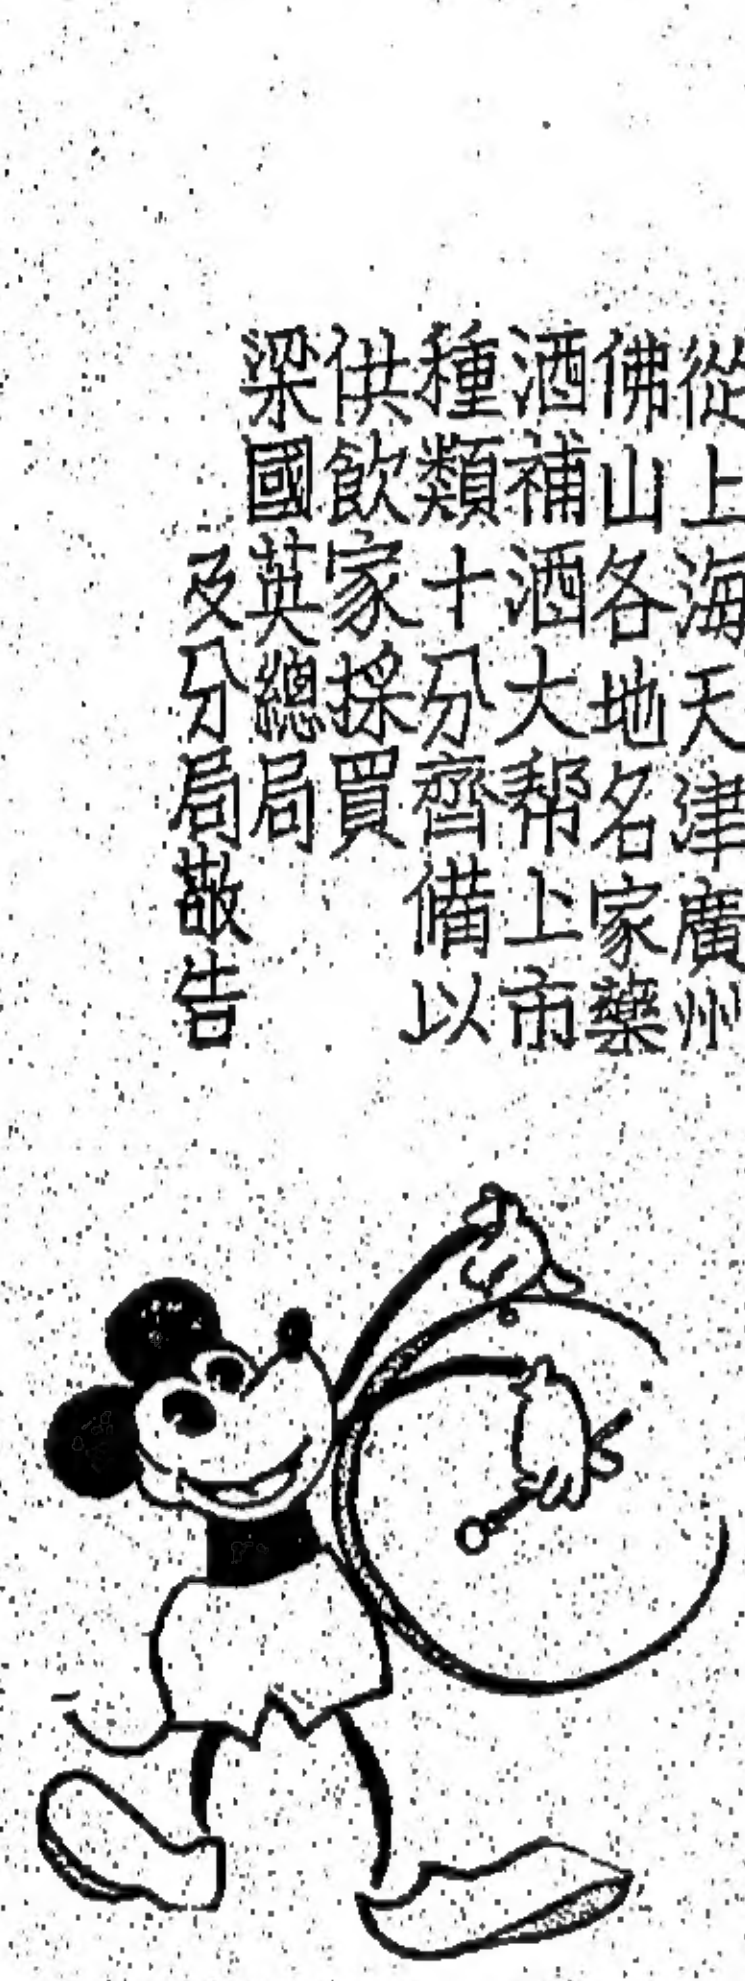 從上海天津廣州
佛山各地名家藥
酒補酒大帮上市
種類十分齊備以
供飲家採買
梁國英總局
及分局敬告